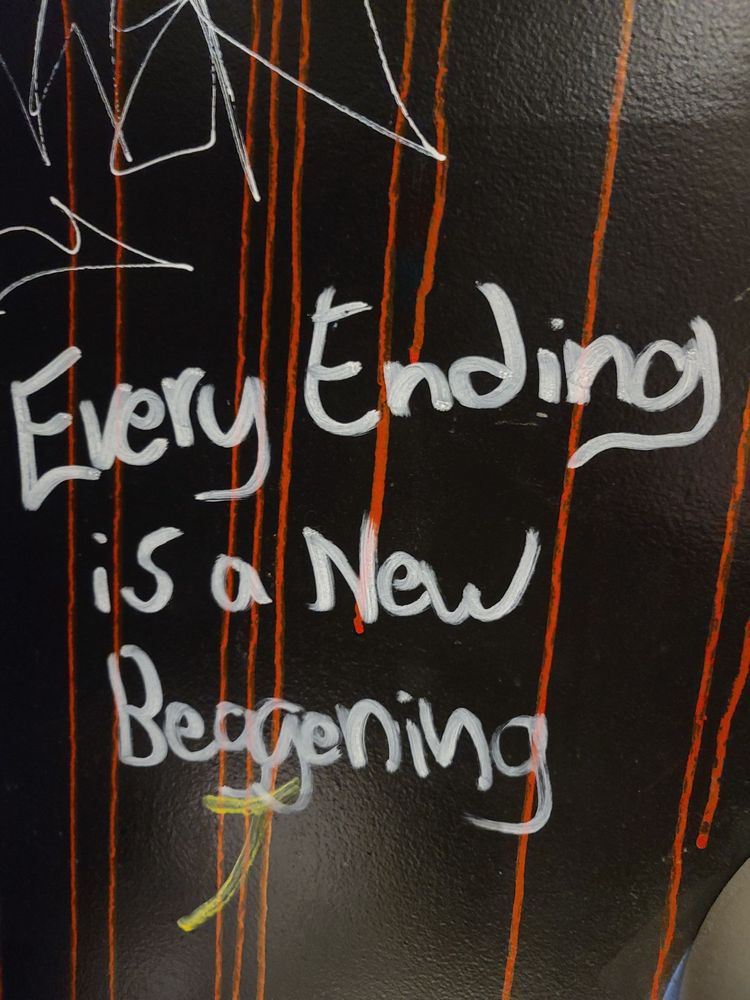 Every Ending
is a New
Beagening